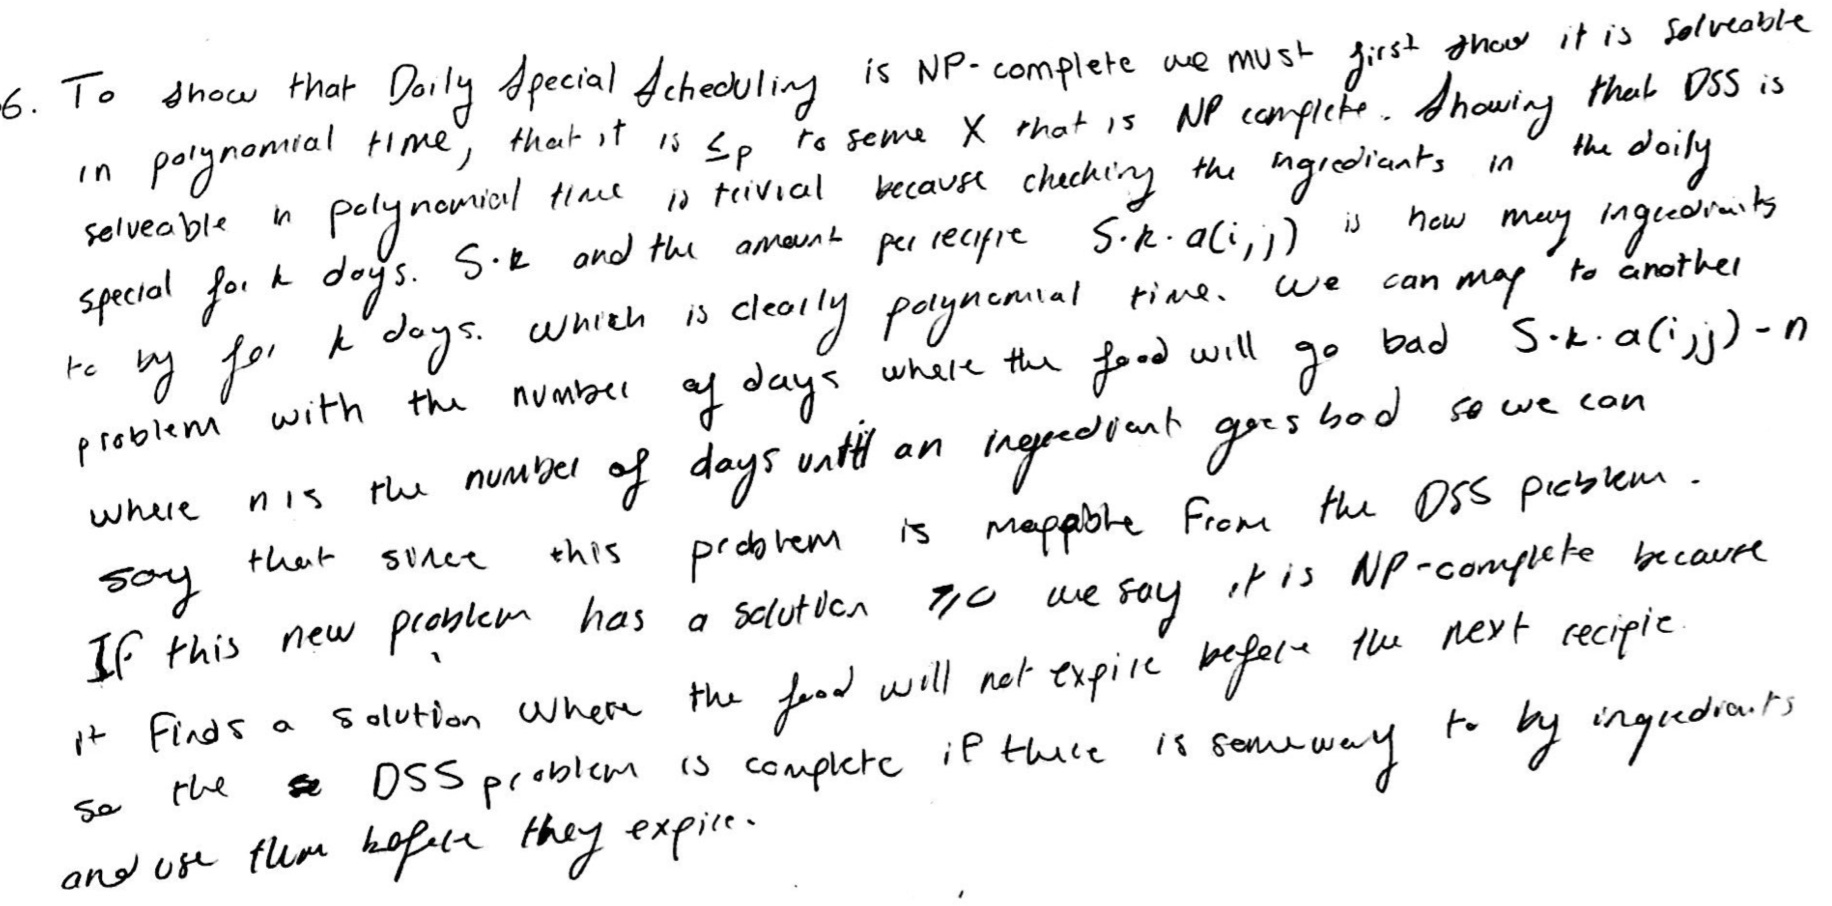 6. To show that Daily Special Scheduling is NP-complete we must first show it is solveable
in polynomial time, that it is ≤p to some X that is NP complete. Showing that DSS is
solveable in polynomial time is trivial because checking the ingrediants in the daily
special for k days. S·k and the amount per recipie S·k·a(i,j) is how many ingrediants
to by for k days. which is clearly polynomial time. We can map to another
problem with the number of days where the food will go bad S·k·a(i,j)-n
where n is the number of days until an ingredient goes bad so we can
say that since this problem is mappable from the DSS problem.
If this new problem has a solution ≥0 we say it is NP-complete because
it finds a solution where the food will not expire before the next recipie.
so the DSS problem is complete if there is someway to by ingrediants
and use them before they expire.